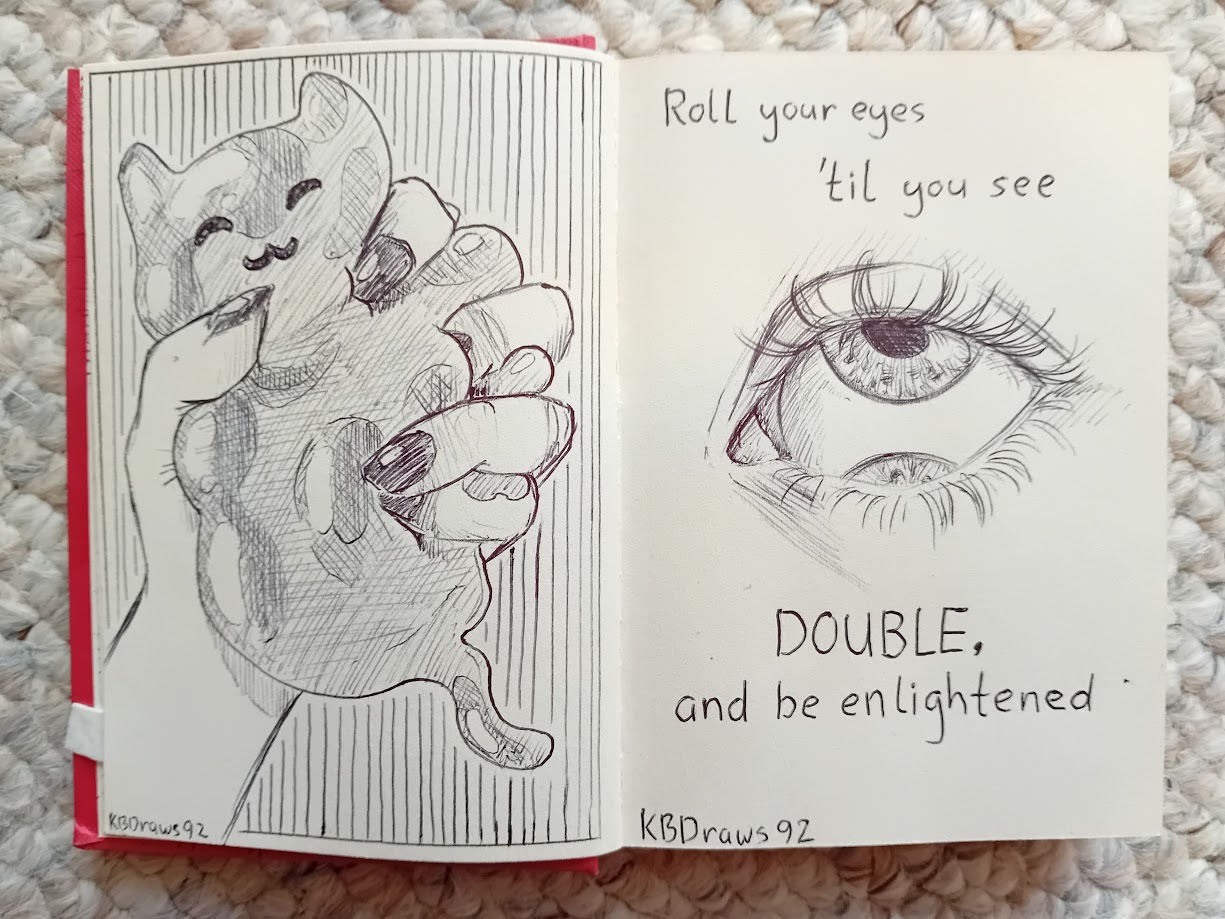 KBDraws92
Roll your eyes
'til you see
DOUBLE,
and be enlightened
KBDraws92